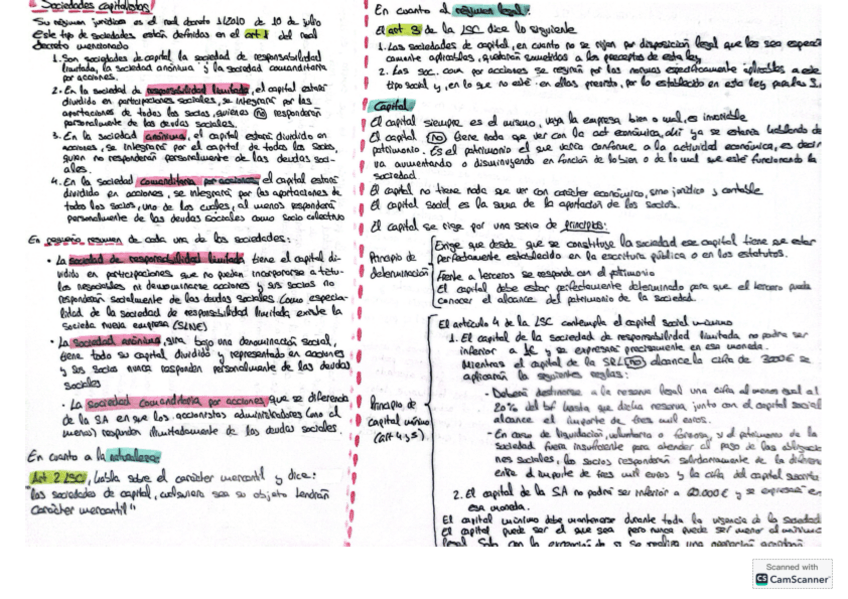 Sociedades capitalistas
Su régimen jurídico es el real decreto 1/2010 de 10 de julio
Este tipo de sociedades están definidas en el art 1 del real
decreto mencionado
1. Son sociedades de capital la sociedad de responsabilidad
limitada, la sociedad anónima y la sociedad comanditaria
por acciones.
2. En la sociedad de responsabilidad limitada, el capital estará
dividido en participaciones sociales, se integrará por las
aportaciones de todos los socios, quienes no responderán
personalmente de las deudas sociales.
3. En la sociedad anónima, el capital estará dividido en
acciones, se integrará por el capital de todos los socios,
quien no responderán personalmente de las deudas soci-
ales.
4. En la sociedad comanditaria por acciones, el capital estará
dividido en acciones, se integrará por las aportaciones de
todos los socios, uno de los cuales, al menos responderá
personalmente de las deudas sociales como socio colectivo
En pequeño resumen de cada una de las sociedades:
• La sociedad de responsabilidad limitada tiene el capital di-
vidido en participaciones que no pueden incorporarse a títu-
los negociables ni denominarse acciones y sus socios no
responderán socialmente de las deudas sociales. Como especia-
lidad de la sociedad de responsabilidad limitada existe la
Sociedad nueva empresa (SLNE)
• La sociedad anónima, gira bajo una denominación social,
tiene todo su capital dividido y representado en acciones
y sus socios nunca responden personalmente de las deudas
sociales
• La sociedad comanditaria por acciones, que se diferencia
de la SA en que los accionistas administradores (uno al
menos) responden ilimitadamente de las deudas sociales
En cuanto a la naturaleza:
Art 2 LSC, habla sobre el carácter mercantil y dice:
"las sociedades de capital, cualquiera sea su objeto tendrán
carácter mercantil"
En cuanto al régimen legal:
El art 3 de la LSC dice lo siguiente
1. Las sociedades de capital, en cuanto no se rijan por disposición legal que les sea específi-
camente aplicable, quedarán sometidas a los preceptos de esta ley.
2. Las soc. com por acciones se regirán por las normas específicamente aplicables a este
tipo social y, en lo que no esté en ellas previsto, por lo establecido en esta ley para las S.
Capital
El capital siempre es el mismo, vaya la empresa bien o mal, es invariable
El capital no tiene nada que ver con la act económica, ahí ya se estaría hablando de
patrimonio. Es el patrimonio el que varía conforme a la actividad económica, es decir
va aumentando o disminuyendo en función de lo bien o de lo mal que esté funcionando la
sociedad
El capital no tiene nada que ver con carácter económico, sino jurídico y contable
El capital social es la suma de la aportación de los socios.
El capital se rige por una serie de principios:
Principio de
determinación
Exige que desde que se constituye la sociedad ese capital tiene que estar
perfectamente establecido en la escritura pública o en los estatutos.
Frente a terceros se responde con el patrimonio
El capital debe estar perfectamente determinado para que el tercero pueda
conocer el alcance del patrimonio de la sociedad.
Principio de
capital mínimo
(art 4 y 5)
El artículo 4 de la LSC contempla el capital social mínimo
1. El capital de la sociedad de responsabilidad limitada no podrá ser
inferior a 1€ y se expresará precisamente en esa moneda.
Mientras el capital de la SRL no alcance la cifra de 3000€ se
aplicarán las siguientes reglas:
• Deberá destinarse a la reserva legal una cifra al menos igual al
20% del bf hasta que dicha reserva junto con el capital social
alcance el importe de tres mil euros.
• En caso de liquidación, voluntaria o forzosa, si el patrimonio de la
sociedad fuera insuficiente para atender al pago de las obligacio
nes sociales, los socios responderán solidariamente de la diferencia
entre el importe de tres mil euros y la cifra del capital suscrito.
2. El capital de la SA no podrá ser inferior a 60.000€ y se expresará en
esa moneda.
El capital mínimo debe mantenerse durante toda la vigencia de la sociedad
El capital puede ser el que sea pero nunca puede ser menor al mínimo
legal. Solo con la
Scanned with
CS CamScanner